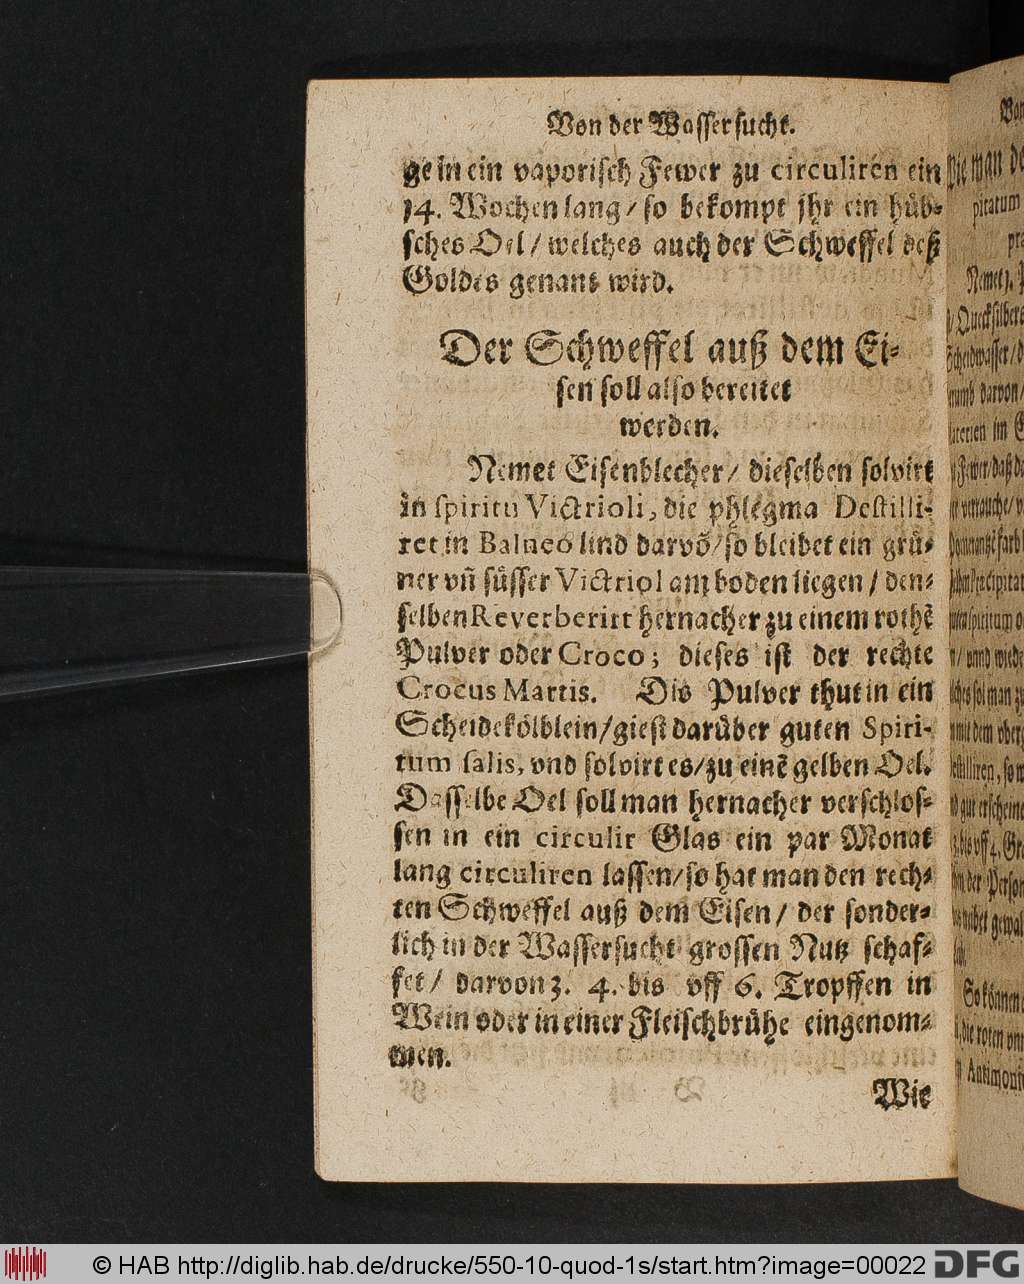 Von der Wassersucht.
ge in ein vaporisch Fewer zu circuliren ein
14. Wochen lang / so bekompt jhr ein hüb-
sches Oel / welches auch der Schweffel deß
Goldes genant wird.
Der Schweffel auß dem Ei-
sen soll also bereitet
werden.
Nemet Eisenblecher / dieselben solvirt
in spiritu Victrioli, die phlegma Destilli-
ret in Balneo lind darvõ / so bleibet ein grü-
ner vñ süsser Victriol am boden liegen / den-
selben Reverberirt hernacher zu einem rothẽ
Pulver oder Croco; dieses ist der rechte
Crocus Martis. Dis Pulver thut in ein
Scheidekölblein / giest darüber guten Spiri-
tum salis, vnd solvirt es / zu einẽ gelben Oel.
Dasselbe Oel soll man hernacher verschlos-
sen in ein circulir Glas ein par Monat
lang circuliren lassen / so hat man den rech-
ten Schweffel auß dem Eisen / der sonder-
lich in der Wassersucht grossen Nutz schaf-
fet / darvon 3. 4. bis vff 6. Tropffen in
Wein oder in einer Fleischbrühe eingenom-
men.
Wie
pitatum
Nemet
Quecksilber
Scheidwasser / d
darvon /
im E
vnnd wiede
soi man zu
mit dem
gut erscheine
bis vff 4. Gr
der Person
So können
die roten vn
Antimoni
© HAB http://diglib.hab.de/drucke/550-10-quod-1s/start.htm?image=00022
DFG